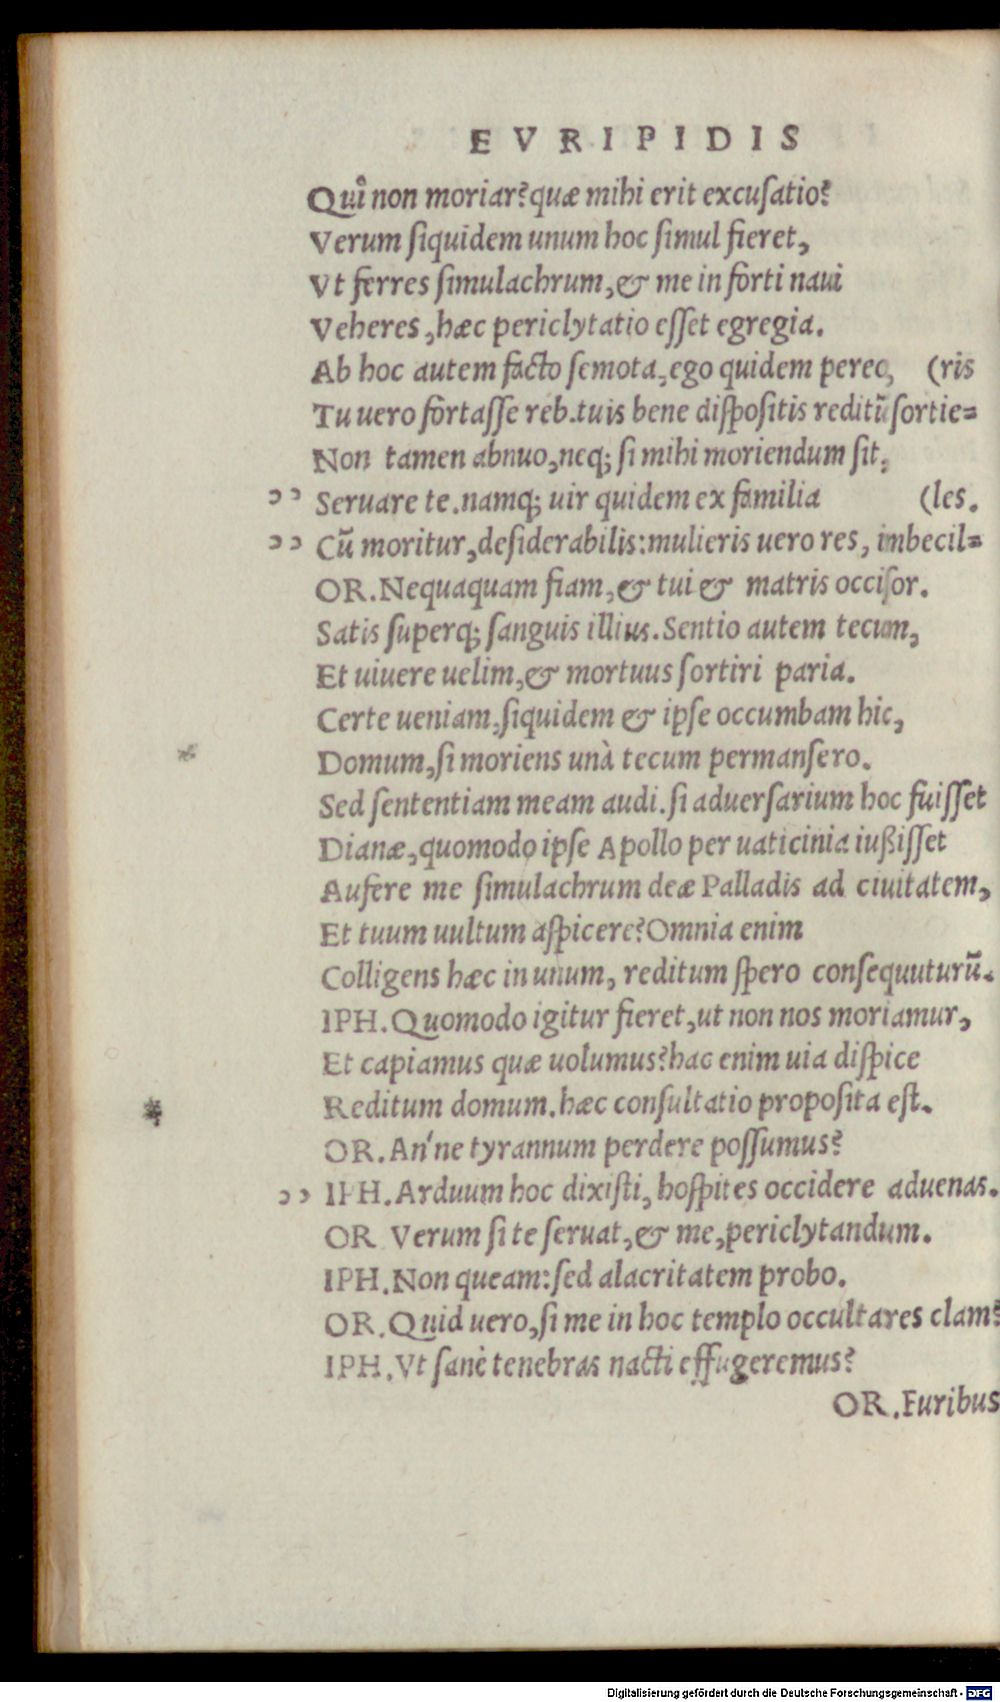 EVRIPIDIS
Quî non moriar? quæ mihi erit excuſatio?
Verum ſiquidem unum hoc ſimul fieret,
Vt ferres ſimulachrum, & me in forti naui
Veheres, hæc periclytatio eſſet egregia.
Ab hoc autem facto ſemota, ego quidem pereo, (ris
Tu uero fortaſſe reb. tuis bene diſpoſitis reditũ ſortie=
Non tamen abnuo, neq; ſi mihi moriendum ſit,
ↄↄ Seruare te. namq; uir quidem ex familia (les.
ↄↄ Cũ moritur, deſiderabilis: mulieris uero res, imbecil=
OR. Nequaquam fiam, & tui & matris occiſor.
Satis ſuperq; ſanguis illius. Sentio autem tecum,
Et uiuere uelim, & mortuus ſortiri paria.
Certe ueniam, ſiquidem & ipſe occumbam hic,
Domum, ſi moriens unà tecum permanſero.
Sed ſententiam meam audi. ſi aduerſarium hoc fuiſſet
Dianæ, quomodo ipſe Apollo per uaticinia iußiſſet
Aufere me ſimulachrum deæ Palladis ad ciuitatem,
Et tuum uultum aſpicere? Omnia enim
Colligens hæc in unum, reditum ſpero conſequuturũ.
IPH. Quomodo igitur fieret, ut non nos moriamur,
Et capiamus quæ uolumus? hac enim uia diſpice
Reditum domum. hæc conſultatio propoſita eſt.
OR. An'ne tyrannum perdere poſſumus?
ↄↄ IPH. Arduum hoc dixiſti, hoſpites occidere aduenas.
OR Verum ſi te ſeruat, & me, periclytandum.
IPH. Non queam: ſed alacritatem probo.
OR. Quid uero, ſi me in hoc templo occultares clam?
IPH. Vt ſanè tenebras nacti effugeremus?
OR. Furibus
Digitalisierung gefördert durch die Deutsche Forschungsgemeinschaft - DFG